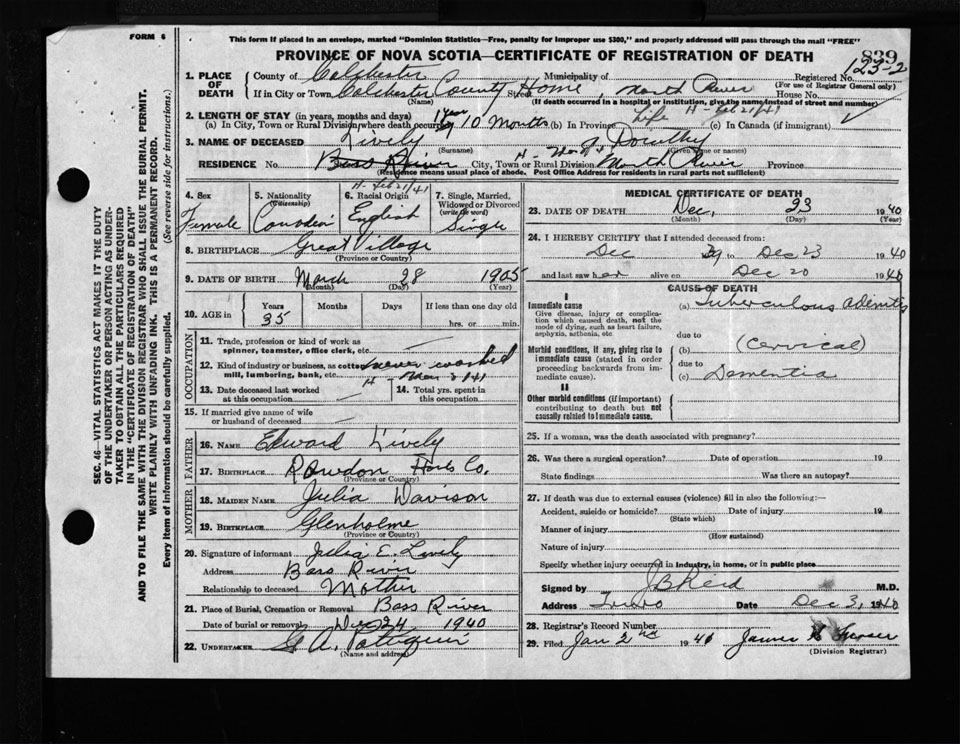 FORM 6
This form if placed in an envelope, marked "Dominion Statistics—Free, penalty for improper use $300," and properly addressed will pass through the mail "FREE"
PROVINCE OF NOVA SCOTIA—CERTIFICATE OF REGISTRATION OF DEATH
839
123-2
1. PLACE OF DEATH
County of Colchester Municipality of Registered No.
(For use of Registrar General only)
If in City or Town Colchester County Home, North River Street House No.
(Name) (If death occurred in a hospital or institution, give the name instead of street and number)
H - Feb 21/41
2. LENGTH OF STAY (in years, months and days)
(a) In City, Town or Rural Division where death occurred 1 year 10 Months (b) In Province Life (c) In Canada (if immigrant)
3. NAME OF DECEASED Lively Dorothy
(Surname) (Given name or names)
RESIDENCE No. Bass River City, Town or Rural Division North River Province
(Residence means usual place of abode. Post Office Address for residents in rural parts not sufficient)
H - Feb 21/41
4. Sex Female
5. Nationality (Citizenship) Canadian
6. Racial Origin English
7. Single, Married, Widowed or Divorced (write the word) Single
8. BIRTHPLACE Great Village
(Province or Country)
9. DATE OF BIRTH March 28 1905
(Month) (Day) (Year)
10. AGE in Years 35 Months Days If less than one day old
hrs. or min.
OCCUPATION
11. Trade, profession or kind of work as spinner, teamster, office clerk, etc.
12. Kind of industry or business, as cotton mill, lumbering, bank, etc. never worked
13. Date deceased last worked at this occupation
14. Total yrs. spent in this occupation
15. If married give name of wife or husband of deceased
FATHER
16. NAME Edward Lively
17. BIRTHPLACE Rawdon Hants Co.
(Province or Country)
MOTHER
18. MAIDEN NAME Julia Davison
19. BIRTHPLACE Glenholme
(Province or Country)
20. Signature of informant Julia E. Lively
Address Bass River
Relationship to deceased Mother
21. Place of Burial, Cremation or Removal Bass River
Date of burial or removal Dec 24 1940
22. UNDERTAKER G. A.
(Name and address)
MEDICAL CERTIFICATE OF DEATH
23. DATE OF DEATH Dec. 23 1940
(Month) (Day) (Year)
24. I HEREBY CERTIFY that I attended deceased from:
Dec to Dec 23 1940
and last saw her alive on Dec 20 1940
CAUSE OF DEATH
I
Immediate cause
Give disease, injury or complication which caused death, not the mode of dying, such as heart failure, asphyxia, asthenia, etc.
(a) Tuberculous Adenitis
due to
Morbid conditions, if any, giving rise to immediate cause (stated in order proceeding backwards from immediate cause).
(b) (Cervical)
due to
(c) Dementia
II
Other morbid conditions (if important) contributing to death but not causally related to immediate cause.
25. If a woman, was the death associated with pregnancy?
26. Was there a surgical operation? Date of operation 19
State findings Was there an autopsy?
27. If death was due to external causes (violence) fill in also the following:—
Accident, suicide or homicide? Date of injury 19
(State which)
Manner of injury
(How sustained)
Nature of injury
Specify whether injury occurred in industry, in home, or in public place
Signed by J B Reid M.D.
Address Truro Date Dec 3, 1940
28. Registrar's Record Number
29. Filed Jan 2nd James
(Division Registrar)
SEC. 46—VITAL STATISTICS ACT MAKES IT THE DUTY
OF THE UNDERTAKER OR PERSON ACTING AS UNDER-
TAKER TO OBTAIN ALL THE PARTICULARS REQUIRED
IN THE "CERTIFICATE OF REGISTRATION OF DEATH"
AND TO FILE THE SAME WITH THE DIVISION REGISTRAR WHO SHALL ISSUE THE BURIAL PERMIT.
WRITE PLAINLY WITH UNFADING INK. THIS IS A PERMANENT RECORD.
Every item of information should be carefully supplied. (See reverse side for instructions.)